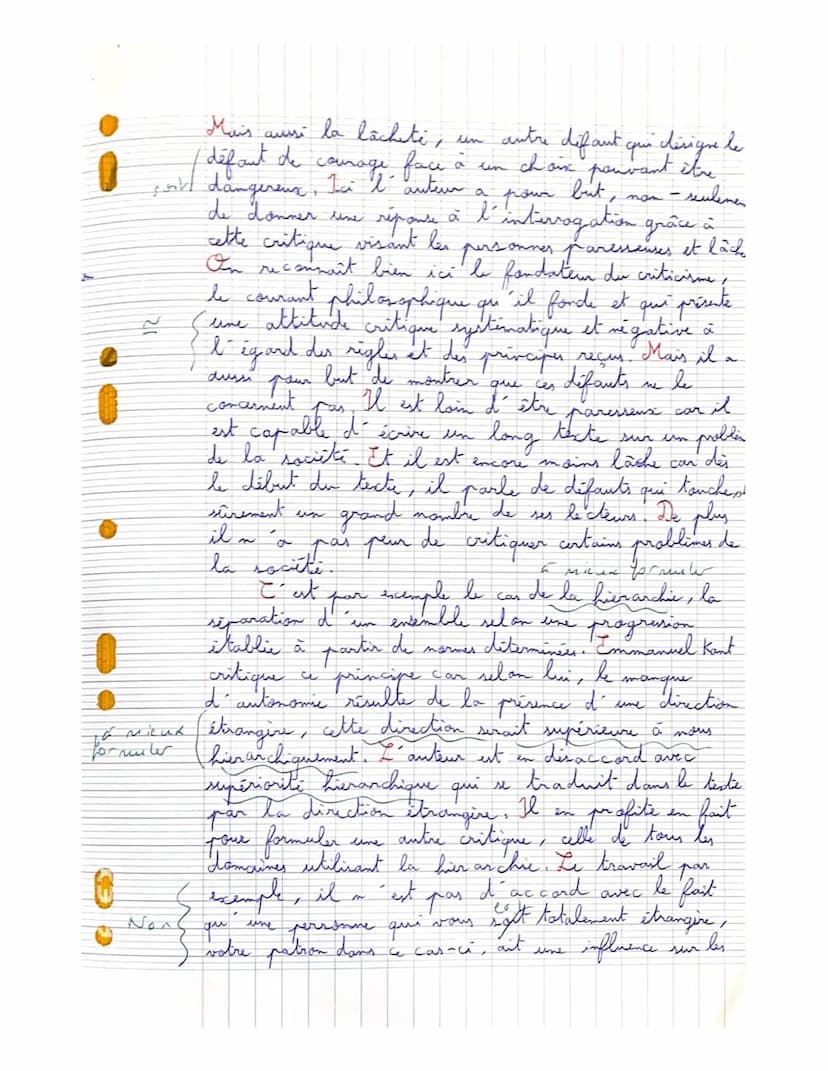 Mais aussi la lâcheté, un autre défaut qui désigne le
défaut de courage face à un choix pouvant être
dangereux. Ici l'auteur a pour but, non-seulemen
de donner une réponse à l'interrogation grâce à
cette critique visant les personnes paresseuses et lâche
On reconnaît bien ici le fondateur du criticisme,
le courant philosophique qu'il fonde et qui présente
≃
une attitude critique systématique et négative à
l'égard des règles et des principes reçus. Mais il a
aussi pour but de montrer que ces défauts ne le
concernent pas. Il est loin d'être paresseux car il
est capable d'écrire un long texte sur un problèm
de la société. Et il est encore moins lâche car dès
le début du texte, il parle de défauts qui touchent
sûrement un grand nombre de ses lecteurs. De plus
il n'a pas peur de critiquer certains problèmes de
la société.
à mieux formuler
C'est par exemple le cas de la hierarchie, la
séparation d'un ensemble selon une progression
établie à partir de normes déterminées. Emmanuel Kant
critique ce principe car selon lui, le manque
d'autonomie résulte de la présence d'une direction
à mieux formuler
étrangère, cette direction serait supérieure à nous
hierarchiquement. L'auteur est en désaccord avec
supériorité hierarchique qui se traduit dans le texte
par la direction étrangère. Il en profite en fait
pour formuler une autre critique, celle de tous les
domaines utilisant la hierarchie. Le travail par
exemple, il n'est pas d'accord avec le fait
Non
qu'une personne qui vous soit totalement étrangère,
votre patron dans ce cas-ci, ait une influence sur les